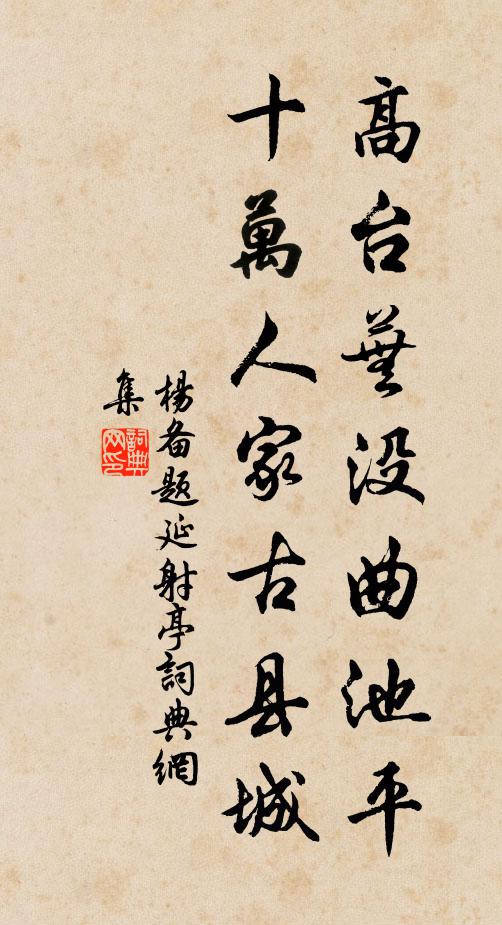 高台蕪没曲池平
十萬人家古县城
楊备题延射亭詞典網
集
詞典
网印